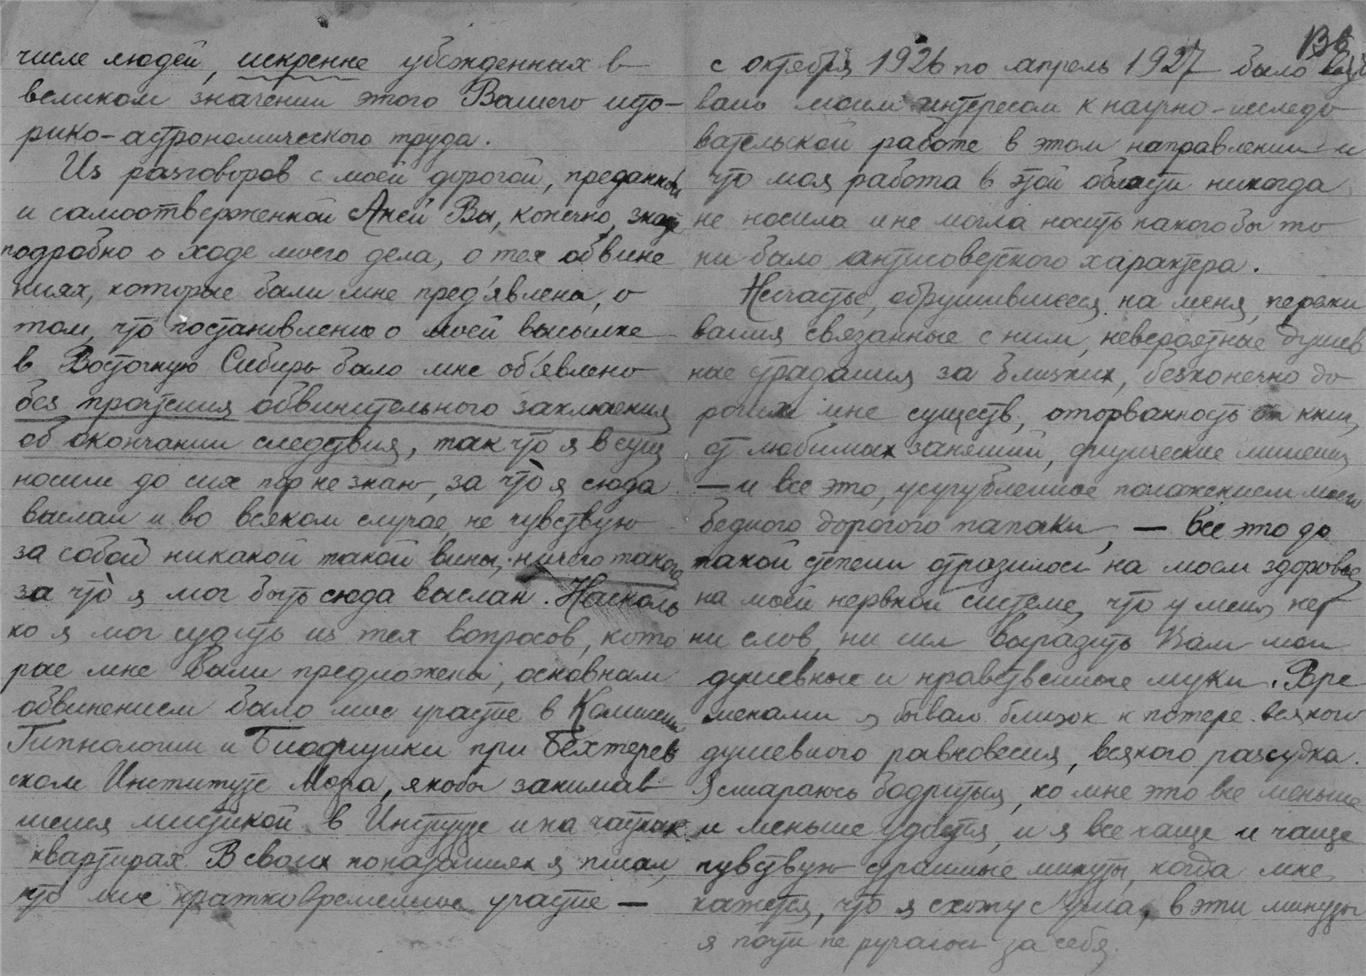 числе людей, искренне убежденных в
великом значении этого Вашего исто-
рико-астрономического труда.
Из разговоров с моей дорогой, преданной
и самоотверженной Аней Вы, конечно, знаете
подробно о ходе моего дела, о тех обвине
ниях, которые были мне пред'явлены, о
том, что постановление о моей высылке
в Восточную Сибирь было мне об'явлено
без прочтения обвинительного заключения
об окончании следствия, так что я в сущ
ности до сих пор не знаю, за что я сюда
выслан и во всяком случае, не чувствую
за собой никакой такой вины, ничего такого
за что я мог быть сюда выслан. Насколь
ко я мог судить из тех вопросов, кото
рые мне были предложены, основным
обвинением было мое участие в Комиссии
Гипнологии и Биофизики при Бехтерев
ском Институте Мозга, якобы занимав
шейся мистикой в Институте и на частных
квартирах. В своих показаниях я писал,
что мое кратковременное участие —
136
с октября 1926 по апрель 1927 было
вано моим интересом к научно-исследо
вательской работе в этом направлении и
что моя работа в этой области никогда
не носила и не могла носить какого бы то
ни было антисоветского характера.
Несчастье, обрушившееся на меня, пережи
вания связанные с ним, невероятные душев
ные страдания за близких, бесконечно до
рогих мне существ, оторванность от книг,
от любимых занятий, физические лишения
— и все это, усугубленное положением моего
бедного дорогого папочки, — все это до
такой степени отразилось на моем здоровье,
на моей нервной системе, что у меня нет
ни слов, ни сил выразить Вам мои
душевные и нравственные муки. Вре
менами я бывал близок к потере всякого
душевного равновесия, всякого рассудка.
Я стараюсь бодриться, но мне это все меньше
и меньше удается, и я все чаще и чаще
чувствую страшные минуты, когда мне
кажется, что я схожу с ума, в эти минуты
я почти не ручаюсь за себя.